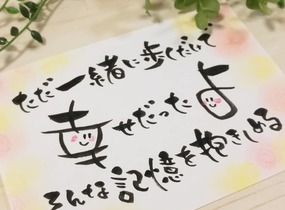 ただ一緒に歩くだけで
幸せだったよ
そんな記憶を抱きしめる